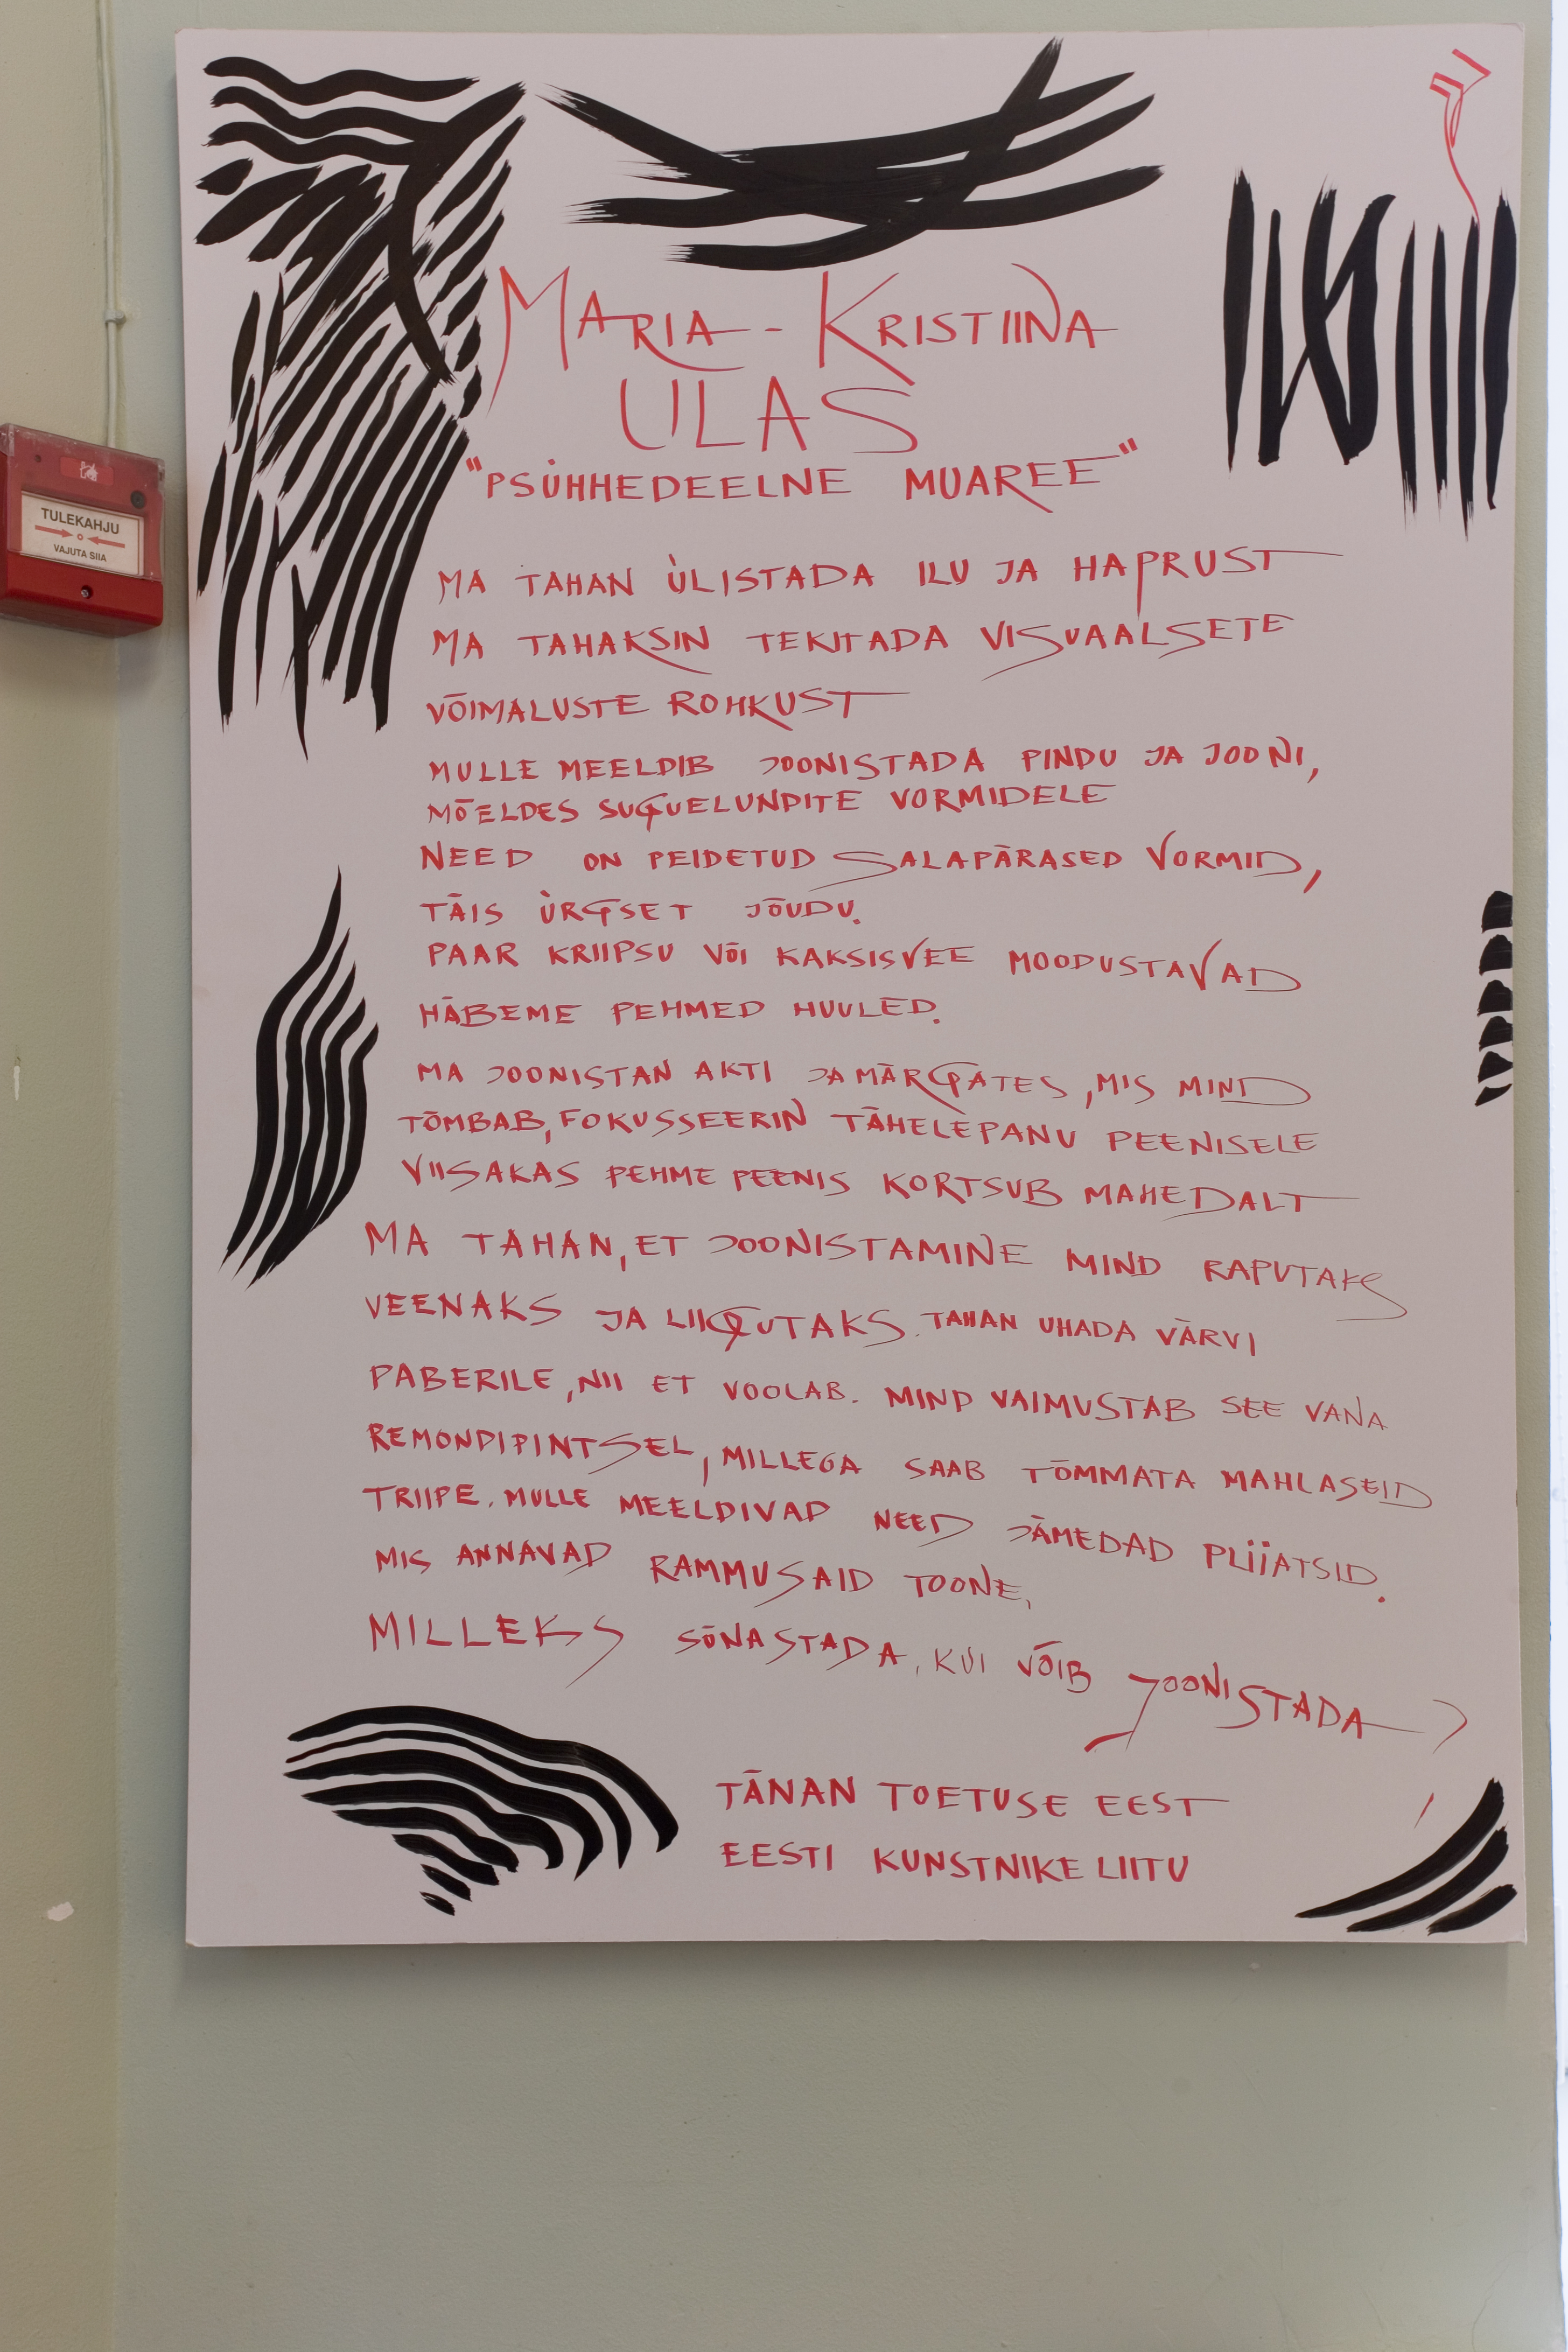 MARIA-KRISTIINA
ULAS
"PSÜHHEDEELNE MUAREE"
MA TAHAN ÜLISTADA ILU JA HAPRUST
MA TAHAKSIN TEKITADA VISUAALSETE
VÕIMALUSTE ROHKUST
MULLE MEELDIB JOONISTADA PINDU JA JOONI,
MÕELDES SUGUELUNDITE VORMIDELE
NEED ON PEIDETUD SALAPÄRASED VORMID,
TÄIS ÜRGSET JÕUDU.
PAAR KRIIPSU VÕI KAKSISVEE MOODUSTAVAD
HÄBEME PEHMED HUULED.
MA JOONISTAN AKTI JA MÄRGATES, MIS MIND
TÕMBAB, FOKUSSEERIN TÄHELEPANU PEENISELE
VIISAKAS PEHME PEENIS KORTSUB MAHEDALT
MA TAHAN, ET JOONISTAMINE MIND RAPUTAKS
VEENAKS JA LIIGUTAKS. TAHAN UHADA VÄRVI
PABERILE, NII ET VOOLAB. MIND VAIMUSTAB SEE VANA
REMONDIPINTSEL, MILLEGA SAAB TÕMMATA MAHLASEID
TRIIPE. MULLE MEELDIVAD NEED JÄMEDAD PLIIATSID.
MIS ANNAVAD RAMMUSAID TOONE,
MILLEKS SÕNASTADA, KUI VÕIB JOONISTADA
TÄNAN TOETUSE EEST
EESTI KUNSTNIKE LIITU
TULEKAHJU
VAJUTA SIIA